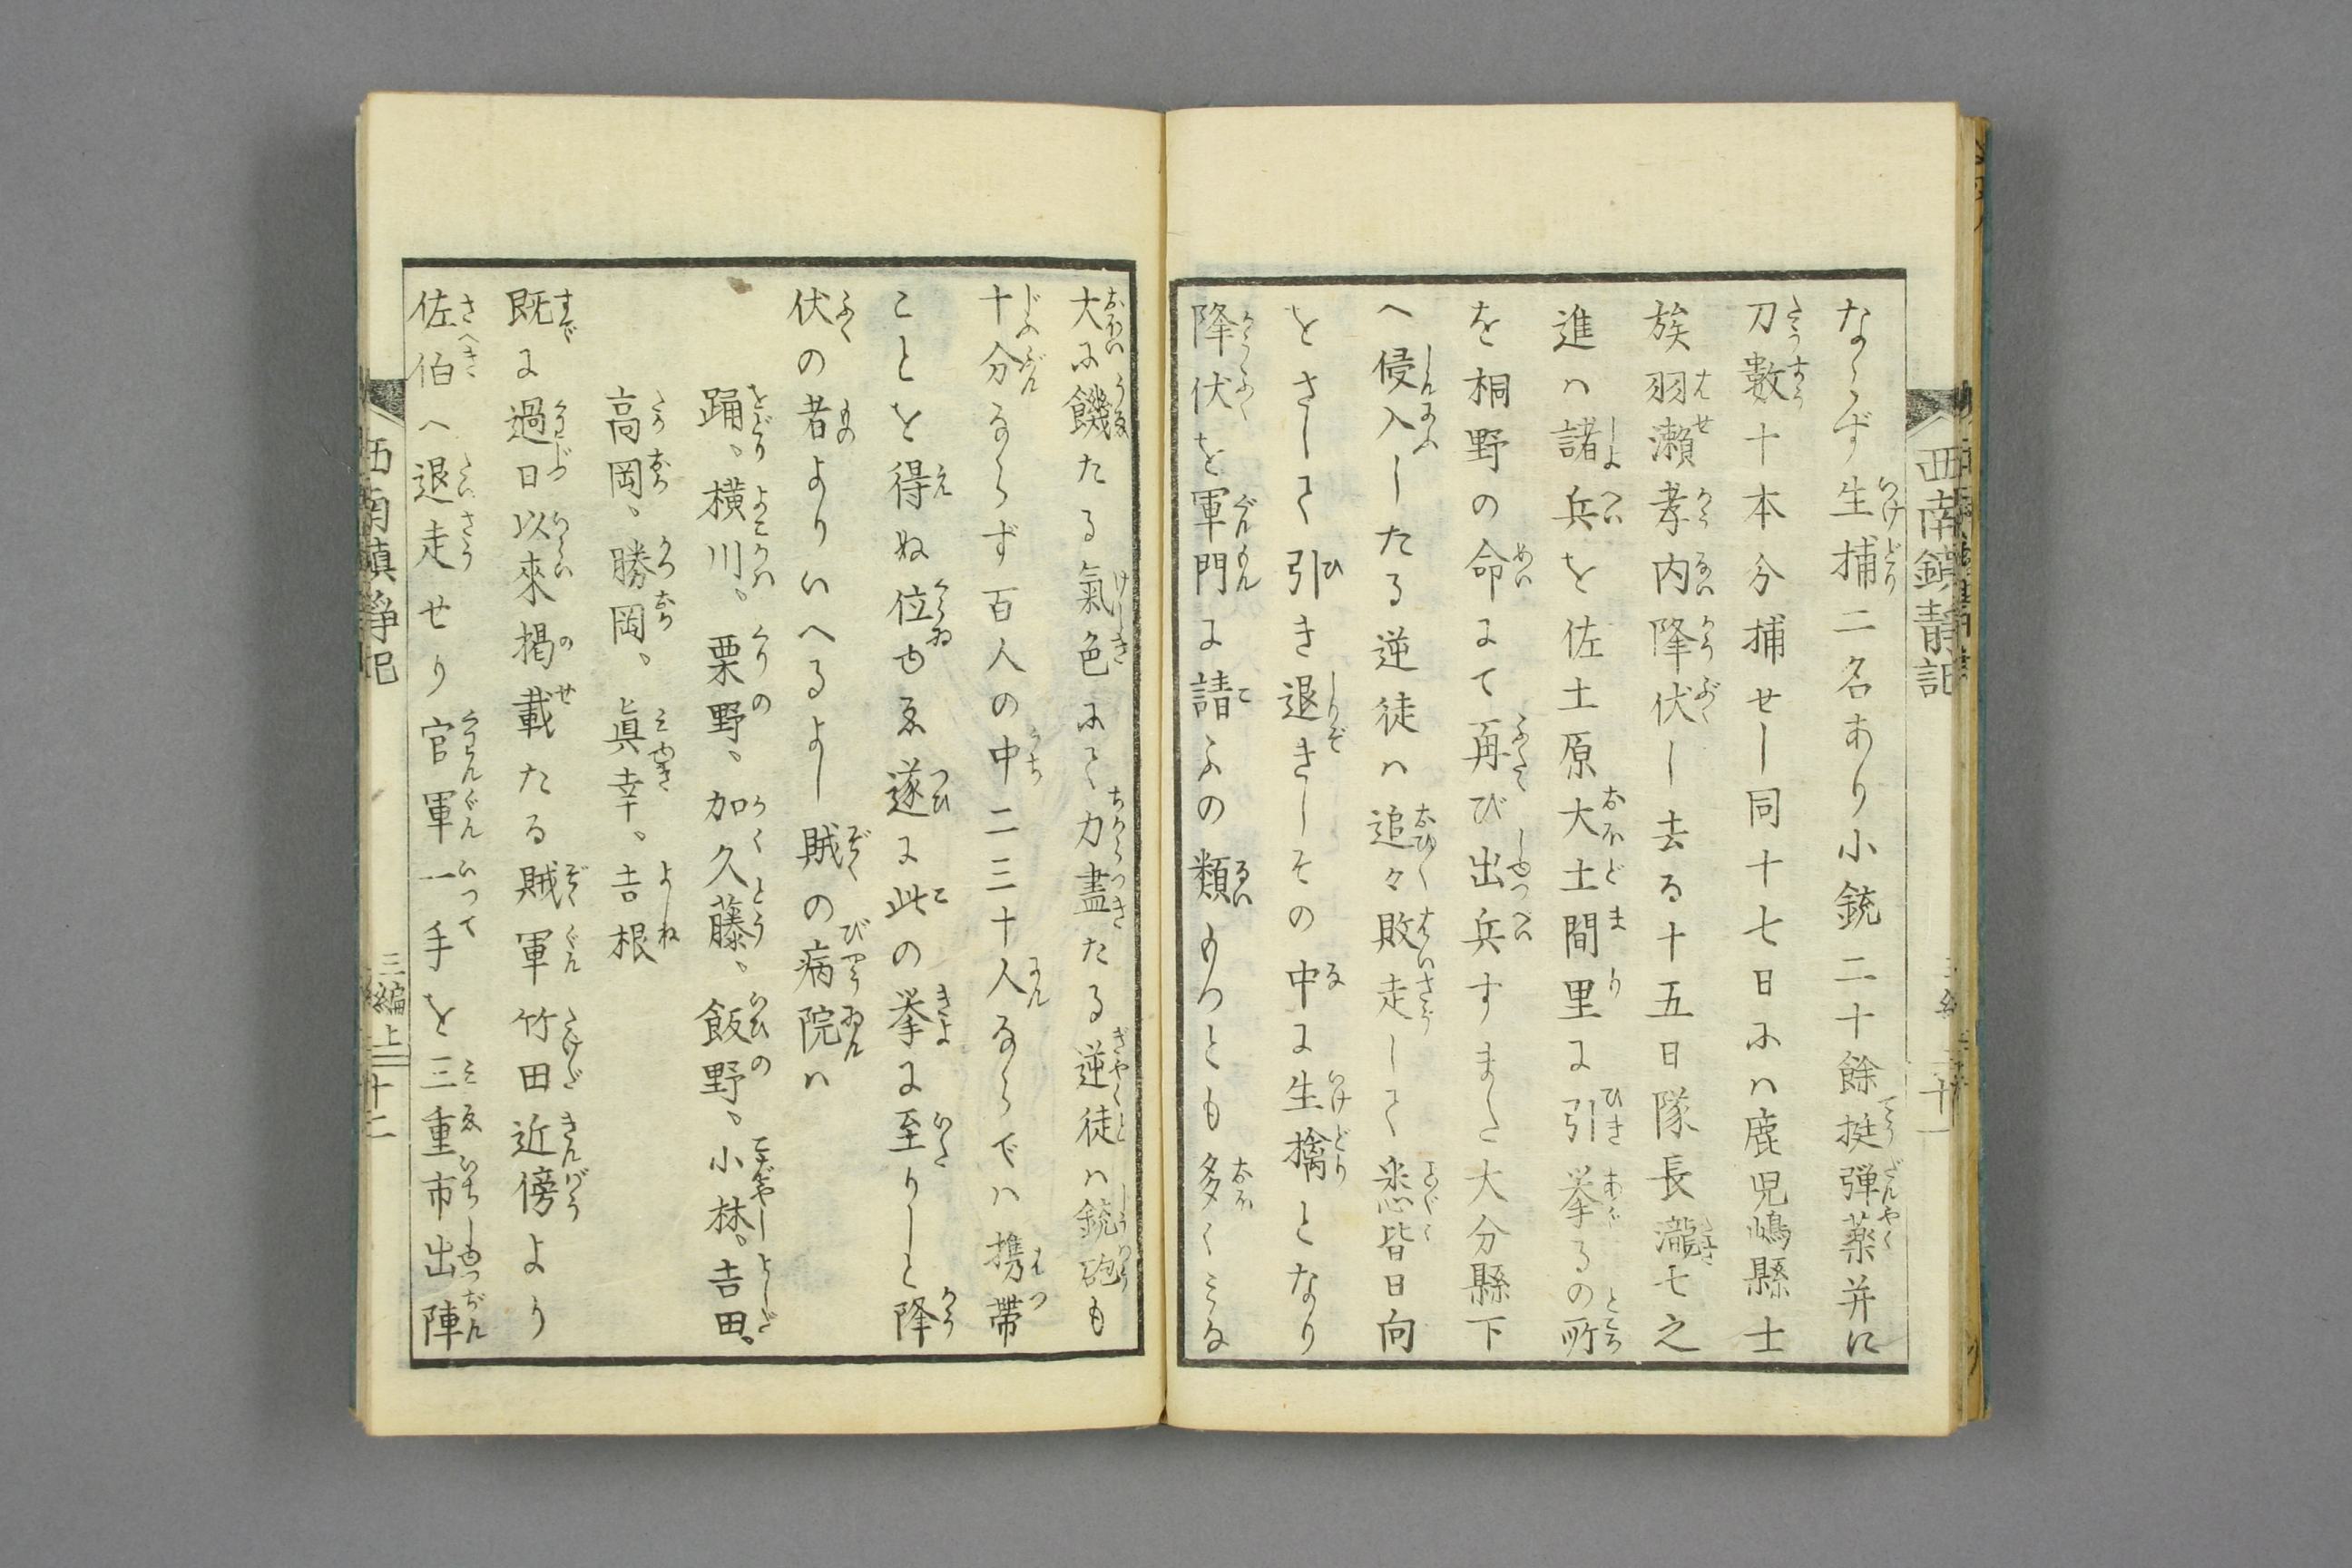 西南鎮静記
十一
ならず生捕二名あり小銃二十餘挺弾薬并に
刀數十本分捕せし同十七日にハ鹿児嶋縣士
族羽瀬孝内降伏し去る十五日隊長瀧七之
進ハ諸兵を佐土原大土間里に引挙るの所
を桐野の命にて再び出兵すまた大分縣下
へ侵入したる逆徒ハ追々敗走して悉皆日向
をさして引き退きしその中に生擒となり
降伏を軍門に請ふの類ありとも多くミな
大に饑たる氣色にて力盡たる逆徒ハ銃砲も
十分ならず百人の中二三十人ならでハ携帯
ことを得ぬ位ゆゑ遂に此の挙に至りしと降
伏の者よりいへるよし賊の病院ハ
踊、横川、栗野、加久藤、飯野、小林、吉田、
高岡、勝岡、眞幸、吉根
既に過日以來掲載たる賊軍竹田近傍より
佐伯へ退走せり官軍一手を三重市出陣
西南鎮静記
三編上
十二